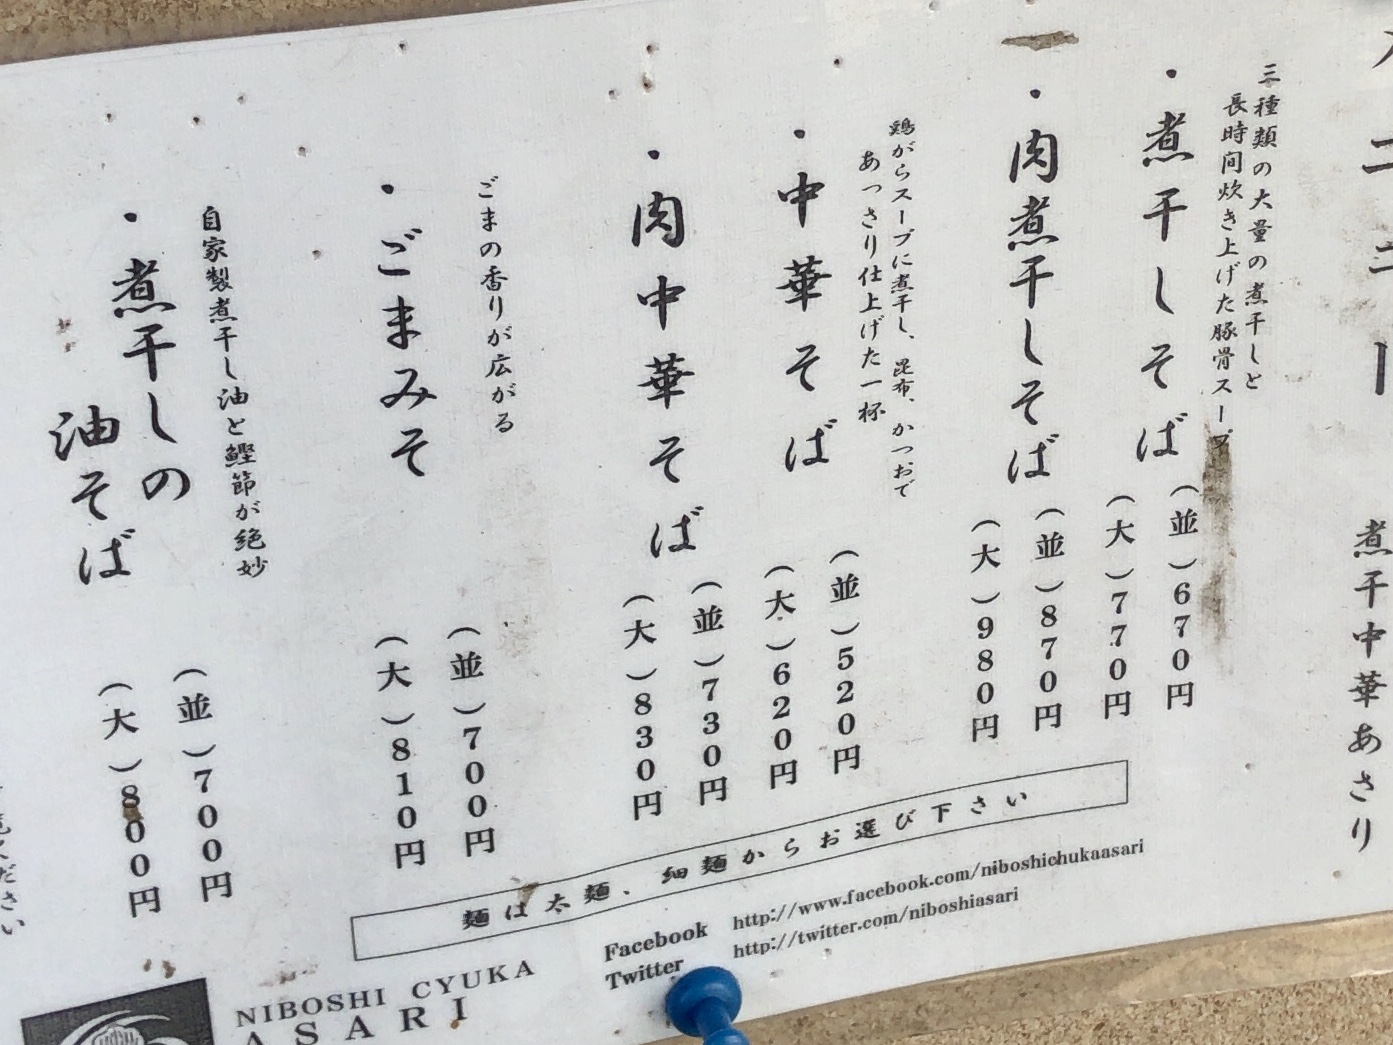 メニュー
煮干中華あさり
三種類の大量の煮干しと
長時間炊き上げた豚骨スープ
・煮干しそば
(並)670円
(大)770円
・肉煮干しそば
(並)870円
(大)980円
鶏がらスープに煮干し、昆布、かつおで
あっさり仕上げた一杯
・中華そば
(並)520円
(大)620円
・肉中華そば
(並)730円
(大)830円
ごまの香りが広がる
・ごまみそ
(並)700円
(大)810円
自家製煮干し油と鰹節が絶妙
・煮干しの
油そば
(並)700円
(大)800円
ください
麺は太麺、細麺からお選び下さい
Facebook http://www.facebook.com/niboshichukaasari
Twitter http://twitter.com/niboshiasari
NIBOSHI CYUKA
ASARI